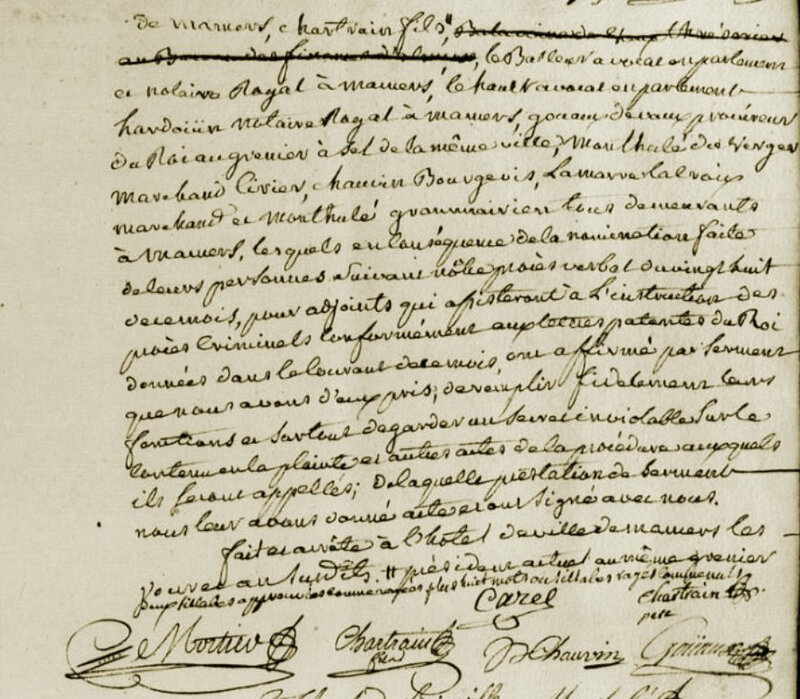 de mamers, chartrain fils",
au Bureau des finances, le Balleur avocat en parlement
et notaire Royal à mamers, le hault avocat en parlement
hardoüin notaire Royal à mamers, devaux procureur
du Roi au grenier à sel de la même ville, Monthulé du Verger
Marchand Cirier, chauvin Bourgeois, Lamarre
marchand et Monthulé grammairien tous demeurants
à mamers, lesquels en conséquence de la nomination faitte
de leurs personnes suivant nôtre procès verbal du vingt huit
de ce mois, pour adjoints qui assisteront à L'instruction des
procès Criminels conformément aux lettres patentes du Roi
données dans le courant de ce mois, ont affirmé par serment
que nous avons d'eux pris, de remplir fidelement leurs
fonctions et surtout de garder un secret inviolable sur le
contenu en la plainte et autres actes de la procédure auxquels
ils seront appellés; de laquelle prestation de serment
nous leur avons donné acte et ont signé avec nous.
fait et arrêté à l'hôtel de ville de mamers les
jour et an susdits. # président actuel au même grenier
plus huit mots ou sillabes rayés
Carel Chartrain
pere
Chartrain
fils
Chauvin